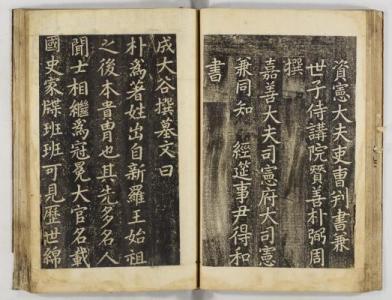 資憲大夫吏曹判書兼
世子侍講院贊善朴弼周
撰
嘉善大夫司憲府大司憲
兼同知 經筵事尹得和
書
成大谷撰墓文曰
朴爲著姓出自新羅王始祖
之後本貴冑也其先多名人
聞士相繼爲冠冕大官名載
國史家牒班班可見歷世綿